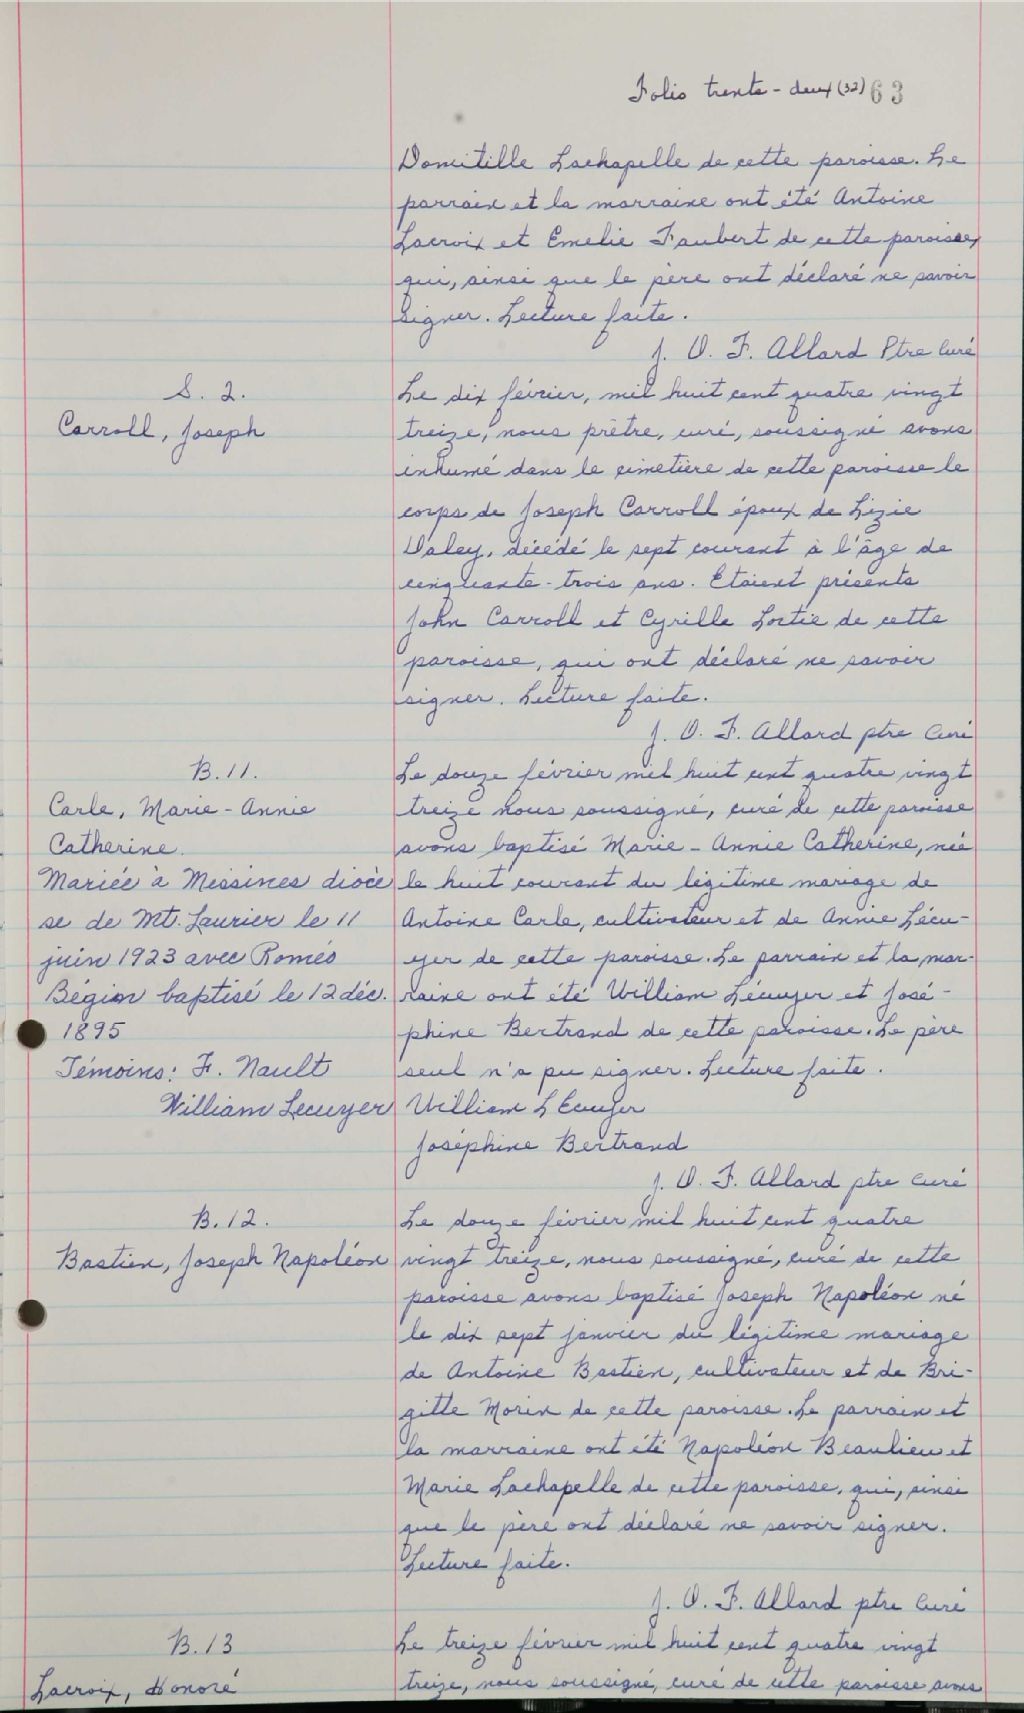 Folio trente-deux (32) 63
Domitille Lachapelle de cette paroisse. Le
parrain et la marraine ont été Antoine
Lacroix et Emelie Faubert de cette paroisse,
qui, ainsi que le père ont déclaré ne savoir
signer. Lecture faite.
J. O. F. Allard Ptre Curé
S. 2.
Carroll, Joseph
Le dix février, mil huit cent quatre vingt
treize, nous prêtre, curé, soussigné avons
inhumé dans le cimetière de cette paroisse le
corps de Joseph Carroll époux de Lizie
Daley, décédé le sept courant à l'âge de
cinquante-trois ans. Etaient présents
John Carroll et Cyrille Lortie de cette
paroisse, qui ont déclaré ne savoir
signer. Lecture faite.
J. O. F. Allard ptre Curé
B. 11.
Carle, Marie-Annie
Catherine.
Mariée à Messines diocè
se de Mt. Laurier le 11
juin 1923 avec Roméo
Bégin baptisé le 12 déc.
1895
Témoins: F. Nault
William Lecuyer
Le douze février mil huit cent quatre vingt
treize nous soussigné, curé de cette paroisse
avons baptisé Marie-Annie Catherine, née
le huit courant du légitime mariage de
Antoine Carle, cultivateur et de Annie Lécu-
yer de cette paroisse. Le parrain et la mar-
raine ont été William Lécuyer et José-
phine Bertrand de cette paroisse. Le père
seul n'a pu signer. Lecture faite.
William L Ecuyer
Joséphine Bertrand
J. O. F. Allard ptre curé
B. 12.
Bastien, Joseph Napoléon
Le douze février mil huit cent quatre
vingt treize, nous soussigné, curé de cette
paroisse avons baptisé Joseph Napoléon né
le dix sept janvier du légitime mariage
de Antoine Bastien, cultivateur et de Bri-
gitte Morin de cette paroisse. Le parrain et
la marraine ont été Napoléon Beaulieu et
Marie Lachapelle de cette paroisse, qui, ainsi
que le père ont déclaré ne savoir signer.
Lecture faite.
J. O. F. Allard ptre Curé
B. 13
Lacroix, Honoré
Le treize février mil huit cent quatre vingt
treize, nous soussigné, curé de cette paroisse avons